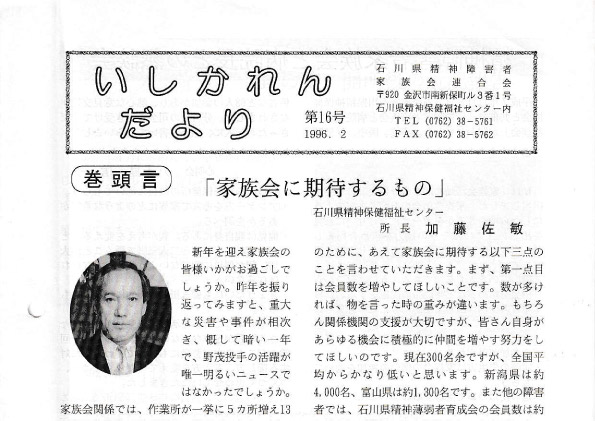 いしかれん
だより
第16号
1996. 2
石川県精神障害者
家族会連合会
〒920 金沢市南新保町ル3番1号
石川県精神保健福祉センター内
TEL (0762) 38−5761
FAX (0762) 38−5762
巻頭言
「家族会に期待するもの」
石川県精神保健福祉センター
所長 加藤佐敏
新年を迎え家族会の
皆様いかがお過ごしで
しょうか。昨年を振り
返ってみますと、重大
な災害や事件が相次
ぎ、概して暗い一年
で、野茂投手の活躍が
唯一明るいニュースで
はなかったでしょうか。
家族会関係では、作業所が一挙に5カ所増え13
のために、あえて家族会に期待する以下三点の
ことを言わせていただきます。まず、第一点目
は会員数を増やしてほしいことです。数が多け
れば、物を言った時の重みが違います。もちろ
ん関係機関の支援が大切ですが、皆さん自身が
あらゆる機会に積極的に仲間を増やす努力をし
てほしいのです。現在300名余ですが、全国平
均からかなり低いと思います。新潟県は約
4,000名、富山県は約1,300名です。また他の障害
者では、石川県精神薄弱者育成会の会員数は約